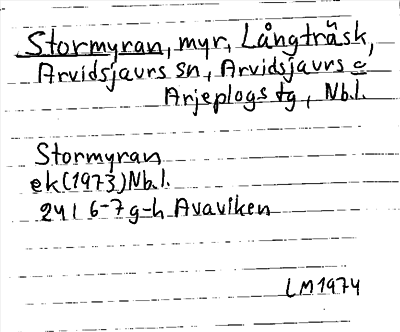 Stormyran, myr, Långträsk,
Arvidsjaurs sn, Arvidsjaurs o
Arjeplogs tg, Nb.l.
Stormyran
ek(1973)Nb.l.
24I 6-7g-h Avaviken
LM1974